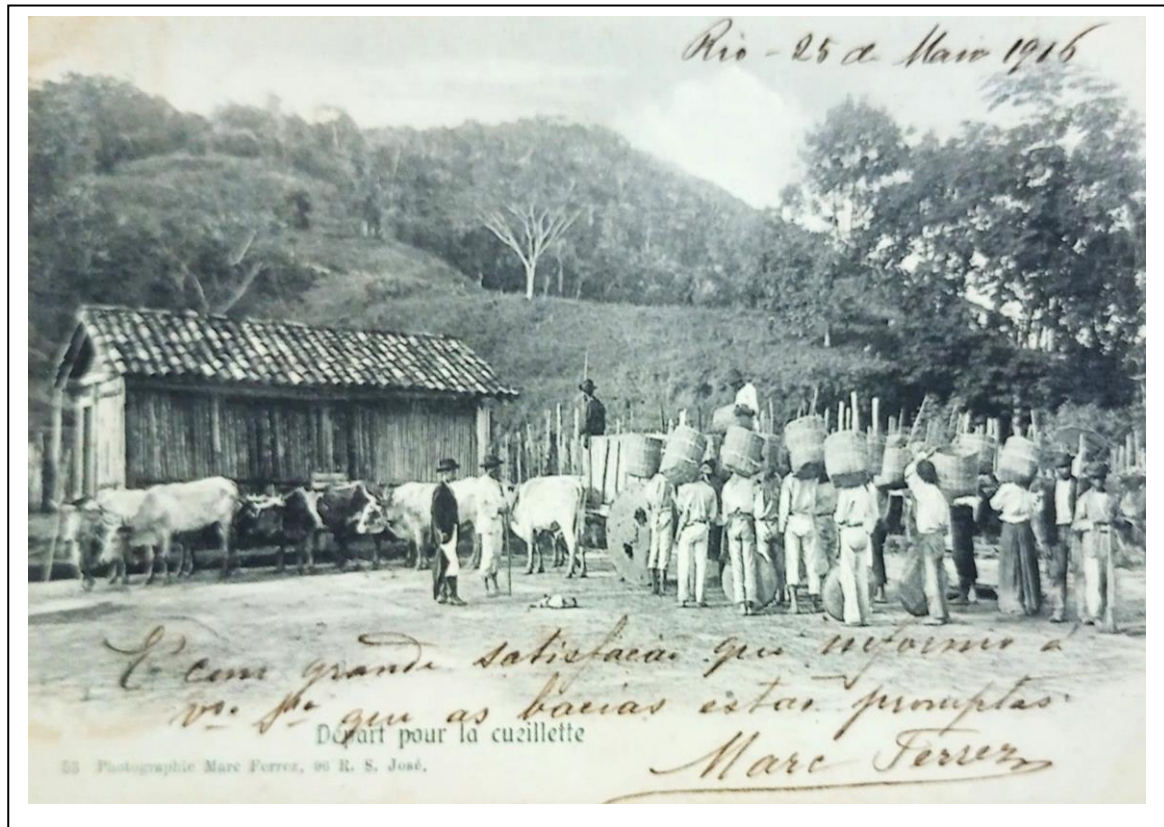 Rio - 25 de Maio 1916
É com grande satisfação que informo á
va. Sa. que as bacias estão promptas.
Départ pour la cueillette
Marc Ferrez
53 Photographie Marc Ferrez, 96 R. S. José.